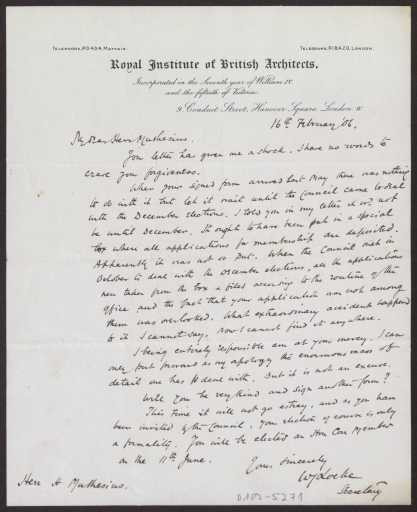 TELEPHONE, Nº 0434, MAYFAIR. TELEGRAMS, "RIBAZO, LONDON."
Royal Institute of British Architects,
Incorporated in the Seventh year of William IV.
and the fiftieth of Victoria.
9 Conduit Street, Hanover Square, London W
16th February '06.
My dear Herr Muthesius.
Your letter has given me a shock. I have no words to
crave your forgiveness.
When your signed form arrived last May there was nothing
to do with it but let it wait until the Council came to deal
with the December elections. I told you in my letter it wd. not
be until December. It ought to have been put in a special
box where all applications for membership are deposited.
Apparently it was not so put. When the Council met in
October to deal with the December elections, all the applications
were taken from the box & filed according to the routine of the
office and the fact that your application was not among
them was overlooked. What extraordinary accident happened
to it I cannot say. Now I cannot find it anywhere.
I being entirely responsible am at your mercy. I can
only put forward as my apology the enormous mass of
detail one has to deal with. But it is not an excuse.
Will you be very kind and sign another form?
This time it will not go astray, and as you have
been invited by the Council, your election of course is only
a formality. You will be elected an Hon Cor Member
on the 11th June.
Yours sincerely
WJLocke
Secretary
Herr H Muthesius.
D102-5271